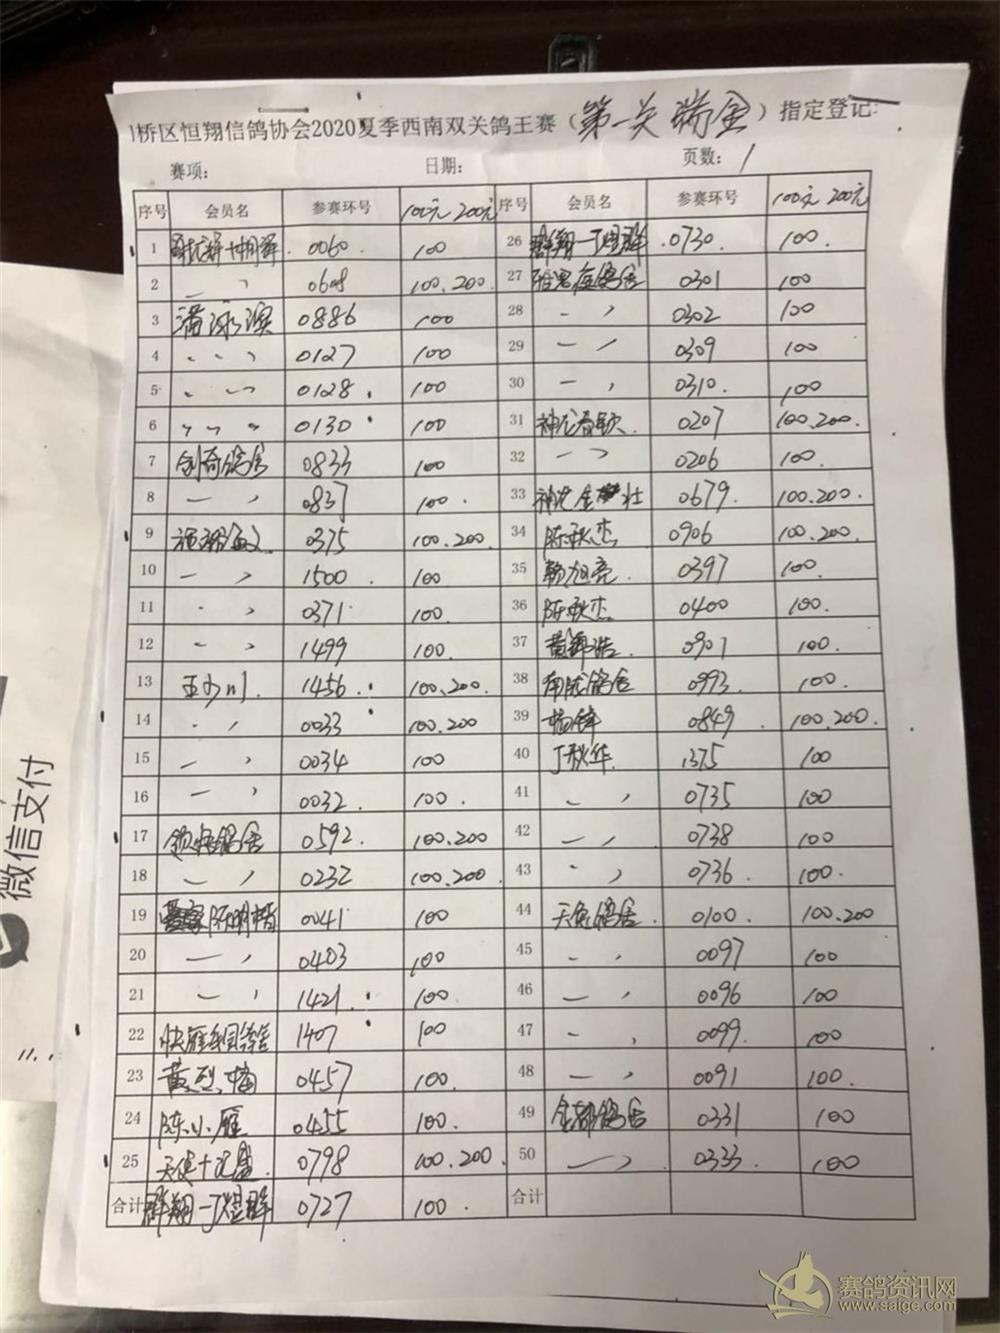 桥区恒翔信鸽协会2020夏季西南双关鸽王赛（第一关瑞金）指定登记:
赛项: 日期: 页数: 1
序号 会员名 参赛环号 100元 200元 序号 会员名 参赛环号 100元 200元
1 0060 100 26 群翔一丁煜群 0730 100
2 〃 0608 100.200 27 0301 100
3 潘泳滨 0886 100 28 〃 0302 100
4 〃 0127 100 29 〃 0309 100
5 〃 0128 100 30 〃 0310 100
6 〃 0130 100 31 神龙春歌 0207 100.200
7 创奇鸽舍 0833 100 32 〃 0206 100
8 〃 0837 100 33 神龙金 壮 0679 100.200
9 0375 100.200 34 陈秋杰 0906 100.200
10 〃 1500 100 35 杨旭亮 0397 100
11 〃 0371 100 36 陈秋杰 0400 100
12 〃 1499 100 37 黄 浩 0901 100
13 王少川 1456 100.200 38 鸽舍 0993 100
14 〃 0033 100.200 39 杨锋 0849 100.200
15 〃 0034 100 40 丁秋华 1375 100
16 〃 0032 100 41 〃 0735 100
17 领快鸽舍 0592 100.200 42 〃 0738 100
18 〃 0232 100.200 43 〃 0736 100
19 陈明楷 0041 100 44 天兔鸽舍 0100 100.200
20 〃 0403 100 45 〃 0097 100
21 〃 1421 100 46 〃 0096 100
22 快雁 鸽舍 1407 100 47 〃 0099 100
23 黄烈楠 0457 100 48 〃 0091 100
24 陈小雁 0455 100 49 金都鸽舍 0331 100
25 天使十 0798 100.200 50 〃 0333 100
合计 群翔一丁煜群 0727 100 合计
微信支付
赛鸽资讯网
www.saige.com